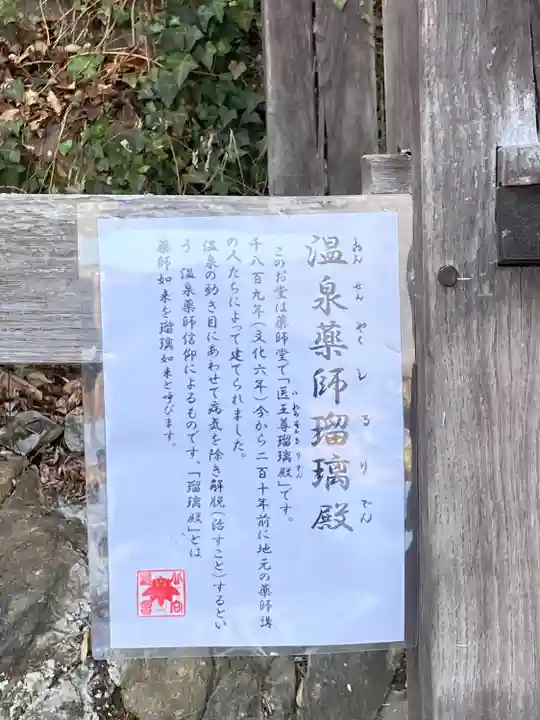 温泉薬師瑠璃殿
おんせんやくしるりでん
このお堂は薬師堂で「医王尊瑠璃殿」です。
千八百九年(文化六年)今から二百十年前に地元の薬師講
の人たちによって建てられました。
温泉の効き目にあわせて病気を除き解脱(治すこと)するとい
う 温泉薬師信仰によるものです、「瑠璃殿」とは
薬師如来を瑠璃如来と呼びます。